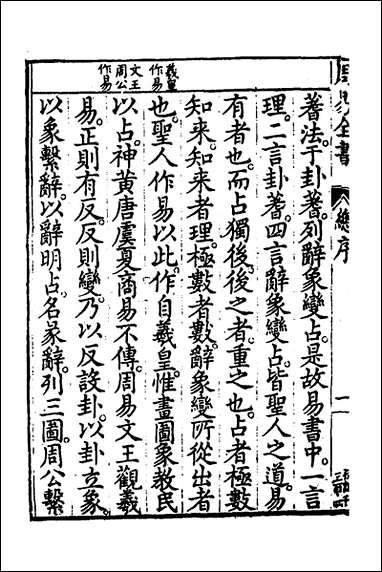 周易全書
總序
一
蓍法于卦蓍列辭象變占是故易書中一言
理二言卦蓍四言辭象變占皆聖人之道易
有者也而占獨後後之者重之也占者極數
知来知来者理極數者數辭象變所從出者
也聖人作易以此作自羲皇惟畫圖象教民
以占神黃唐虞夏商易不傳周易文王觀羲
易正則有反反則變乃以反設卦以卦立象
以象繫辭以辭明占名彖辭列三圖周公繫
羲皇
作易
文王
周公
作易